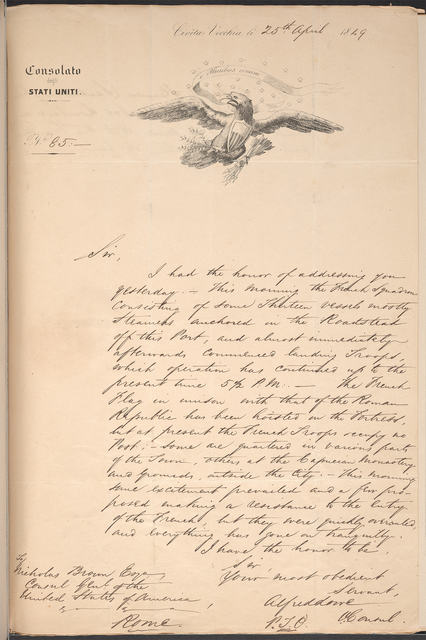 Civita Vecchia li 25th April 1849
Consolato
degli
STATI UNITI.
No. 85.—
Pluribus unum
Sir,
I had the honor of addressing you
yesterday.— This morning the French Squadron
Consisting of some Thirteen vessels mostly
Steamers anchored in the Roadstead
off this Port, and almost immediately
afterwards commenced landing Troops,
which operation has continued up to the
present time 5½ P.M.— The French
Flag in unison with that of the Roman
Republic has been hoisted on the Fortress,
but at present the French Troops occupy no
Post.— Some are quartered in various parts
of the Town, others at the Capucin Monastery
and Grounds, outside the City.— This morning
some excitement prevailed and a few pro-
posed making a resistance to the Entry
of the French, but they were quickly overruled
and everything has gone on tranquilly.
I have the honor to be,
Sir
Your most obedient
Servant,
Alfred Lowe
V. Consul.
To
Nicholas Brown Esqre,
Consul Genl of the
United States of America,
Rome.